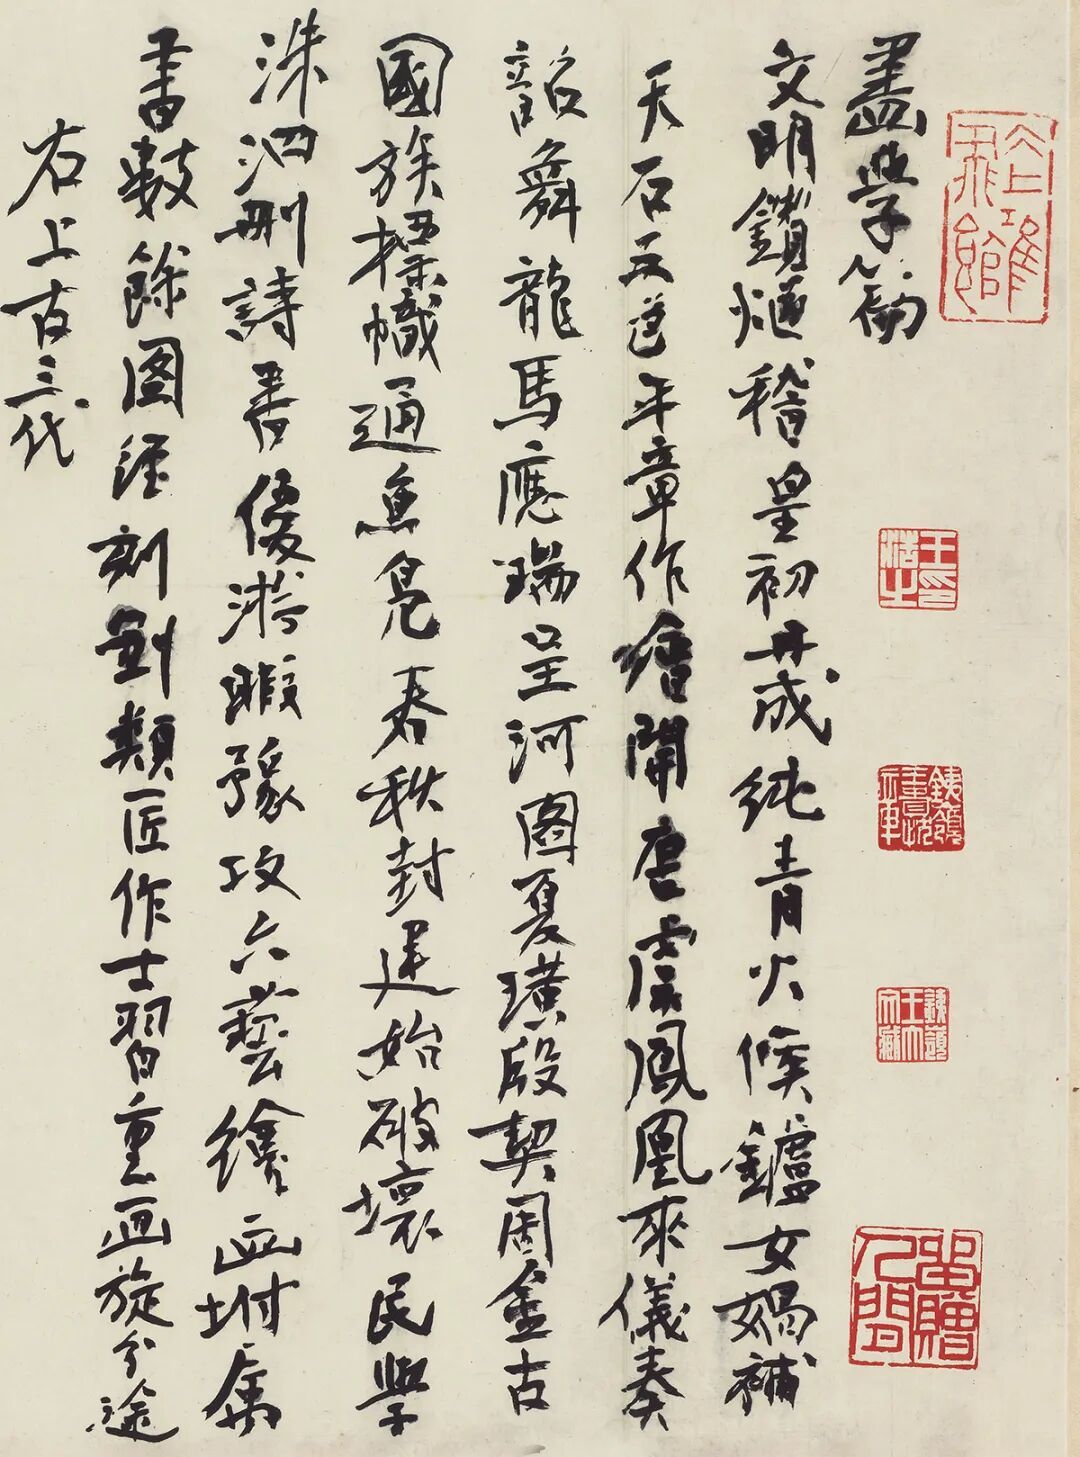 畫學篇
文明鑽燧稽皇初丹成純青火候鑪女媧補
天石五色年章作繪開唐虞鳳凰來儀奏
韶舞龍馬應瑞呈河圖夏璜殷契周金古
國族標幟通魚鳧春秋封建始破壞民學
洙泗刪詩書優游暇豫攻六藝繪畫坿屬
書數餘圖經刻劃類匠作士習重畫旋分途
右上古三代
王浩之印
留贈人間